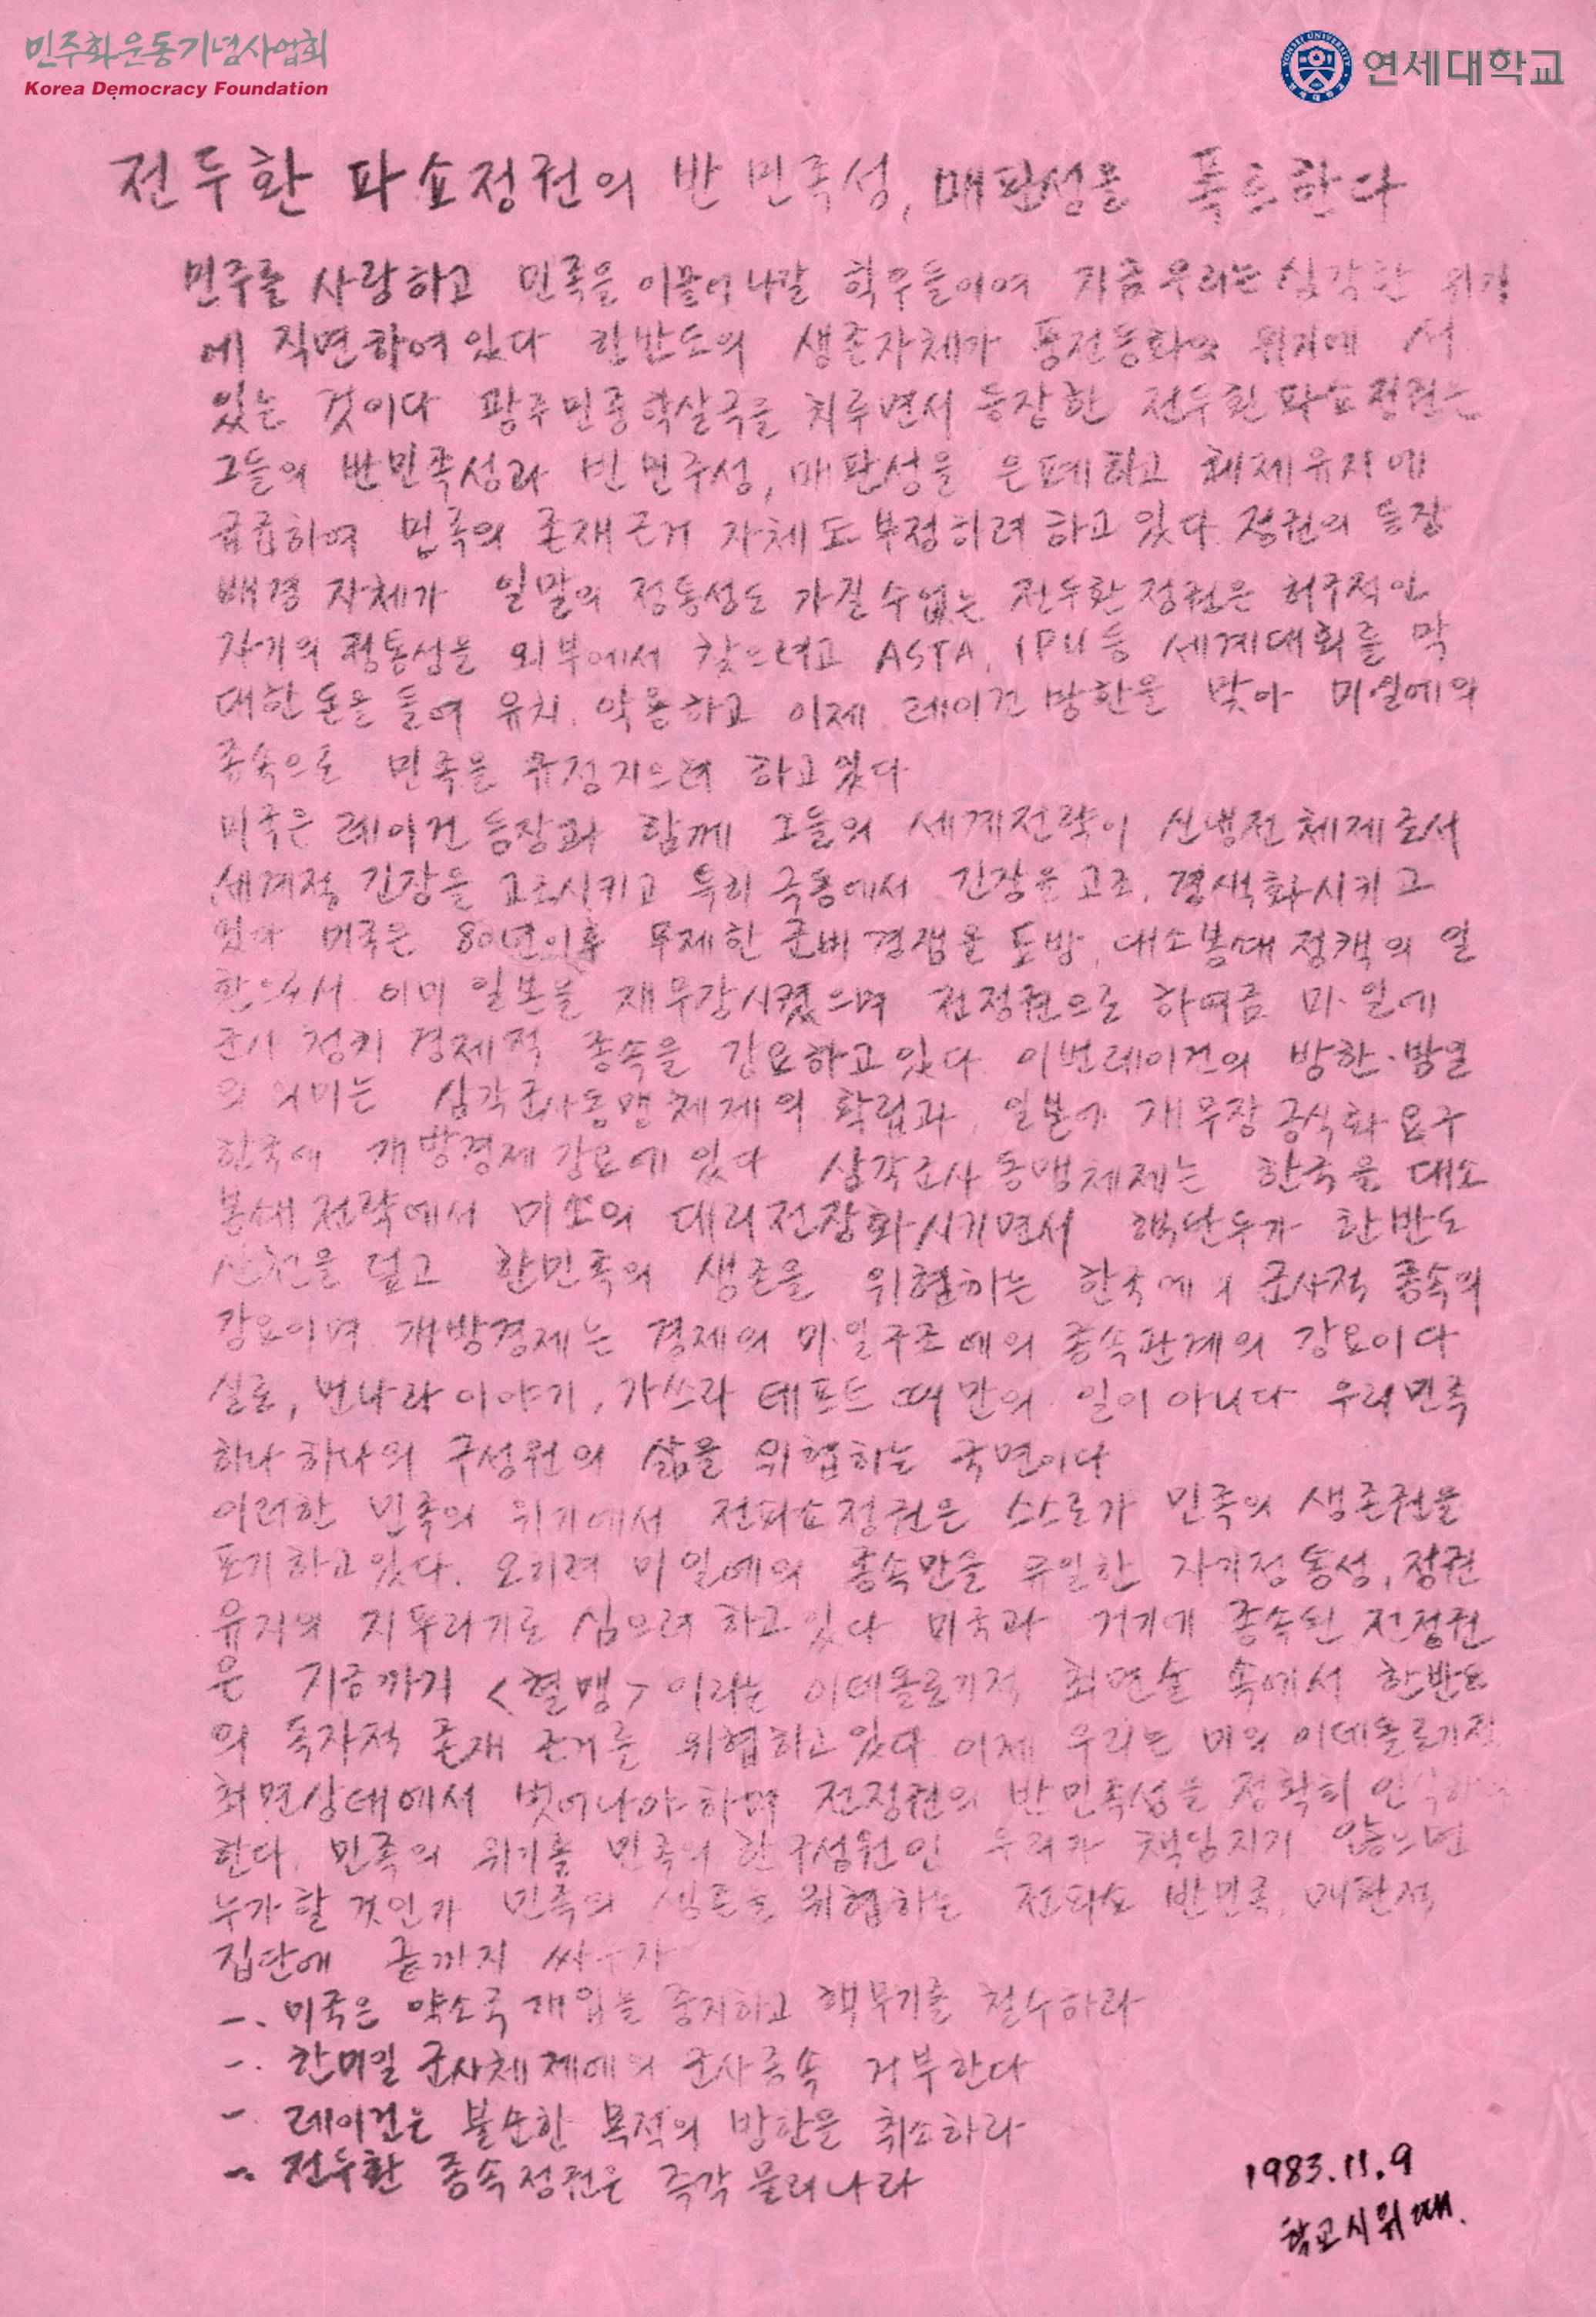 민주화운동기념사업회
Korea Democracy Foundation
연세대학교
전두환 파쇼정권의 반민족성, 매판성을 폭로한다
민주를 사랑하고 민족을 이끌어나갈 학우들이여 지금 우리는 심각한 위기
에 직면하여있다 한반도의 생존자체가 풍전등화의 위치에 서
있는 것이다 광주민중학살극을 치루면서 등장한 전두환파쇼정권은
그들의 반민족성과 반민주성, 매판성을 은폐하고 체제유지에
급급하여 민족의 존재근거 자체도 부정하려 하고있다 정권의 등장
배경 자체가 일말의 정통성도 가질수없는 전두환정권은 허구적인
자기의 정통성을 외부에서 찾으려고 ASTA, IPU등 세계대회를 막
대한 돈을 들여 유치, 악용하고 이제 레이건 방한을 맞아 미일에의
종속으로 민족을 규정지으려 하고있다
미국은 레이건 등장과 함께 그들의 세계전략이 신냉전체제로서
세계적 긴장을 고조시키고 특히 극동에서 긴장을 고조, 경색화시키고
있다 미국은 80년이후 무제한 군비경쟁을 도발, 대소봉쇄정책의 일
환으로서 이미 일본을 재무장시켰으며 전정권으로 하여금 미·일에
군사 정치 경제적 종속을 강요하고있다 이번레이건의 방한·방일
의 의미는 삼각군사동맹체제의 확립과, 일본에 재무장 공식화 요구
한국에 개방경제강요에 있다 삼각군사동맹체제는 한국을 대소
봉쇄전략에서 미소의 대리전장화시키면서 핵탄두가 한반도
산천을 덮고 한민족의 생존을 위협하는 한국에의 군사적 종속의
강요이며 개방경제는 경제의 미·일구조에의 종속관계의 강요이다
실로, 먼나라 이야기, 가쓰라 테프트 때만의 일이 아니다 우리민족
하나하나의 구성원의 삶을 위협하는 국면이다
이러한 민족의 위기에서 전파쇼정권은 스스로가 민족의 생존권을
포기하고있다. 오히려 미일에의 종속만을 유일한 자기정통성, 정권
유지의 지푸라기로 삼으려 하고있다 미국과 거기에 종속된 전정권
은 지금까지 <혈맹>이라는 이데올로기적 최면술 속에서 한반도
의 독자적 존재 근거를 위협하고있다 이제 우리는 미의 이데올로기적
최면상태에서 벗어나야하며 전정권의 반민족성을 정확히 인식하여야
한다. 민족의 위기를 민족의 한구성원인 우리가 책임지지 않으면
누가 할 것인가 민족의 생존을 위협하는 전파쇼 반민족, 매판적
집단에 끝까지 싸우자
一. 미국은 약소국 개입을 중지하고 핵무기를 철수하라
一. 한미일 군사체제에의 군사종속 거부한다
一. 레이건은 불순한 목적의 방한을 취소하라
一. 전두환 종속정권은 즉각 물러나라
1983.11.9
학교시위때.